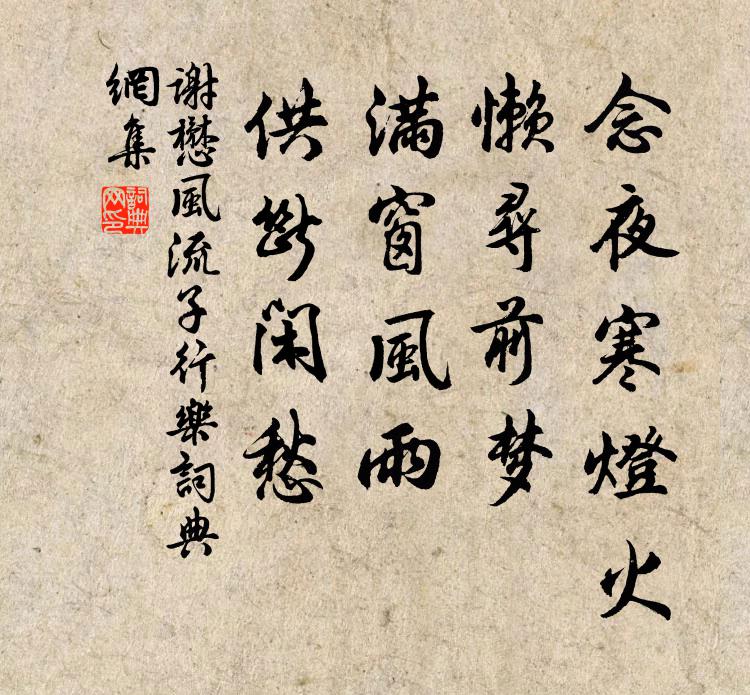 念夜寒燈火
懒尋前梦
滿窗風雨
供斷闲愁
谢懋風流子行樂詞典
網集
詞典
网印